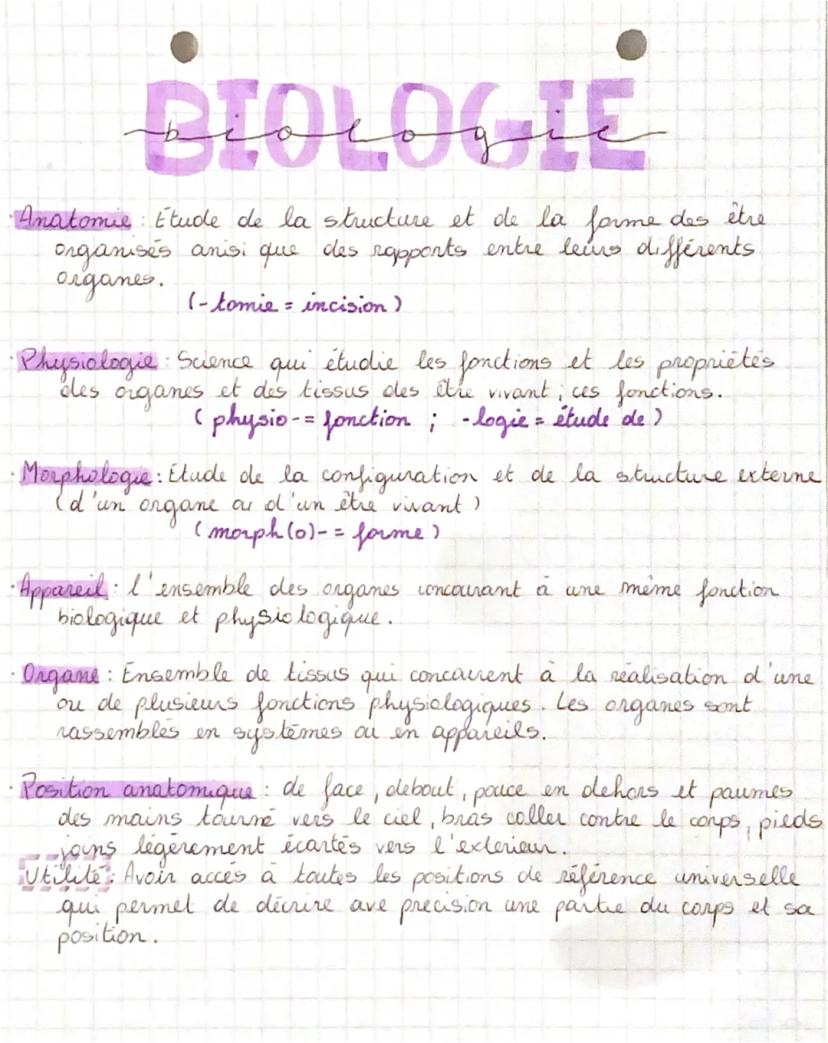 BIOLOGIE
biologie
· Anatomie : Étude de la structure et de la forme des être
organisés anisi que des rapports entre leurs différents
organes.
(- tomie = incision)
· Physiologie : Science qui étudie les fonctions et les propriétés
des organes et des tissus des être vivant ; ces fonctions.
( physio- = fonction ; -logie = étude de )
· Morphologie : Étude de la configuration et de la structure externe
(d'un organe ou d'un être vivant)
( morph(o)- = forme )
· Appareil : l'ensemble des organes concourant à une même fonction
biologique et physiologique.
· Organe : Ensemble de tissus qui concourent à la réalisation d'une
ou de plusieurs fonctions physiologiques. Les organes sont
rassemblés en systèmes ou en appareils.
· Position anatomique : de face, debout, pouce en dehors et paumes
des mains tourné vers le ciel, bras coller contre le corps, pieds
joins légèrement écartés vers l'exterieur.
Utilité : Avoir accés à toutes les positions de référence universelle
qui permet de décrire ave precision une partie du corps et sa
position.